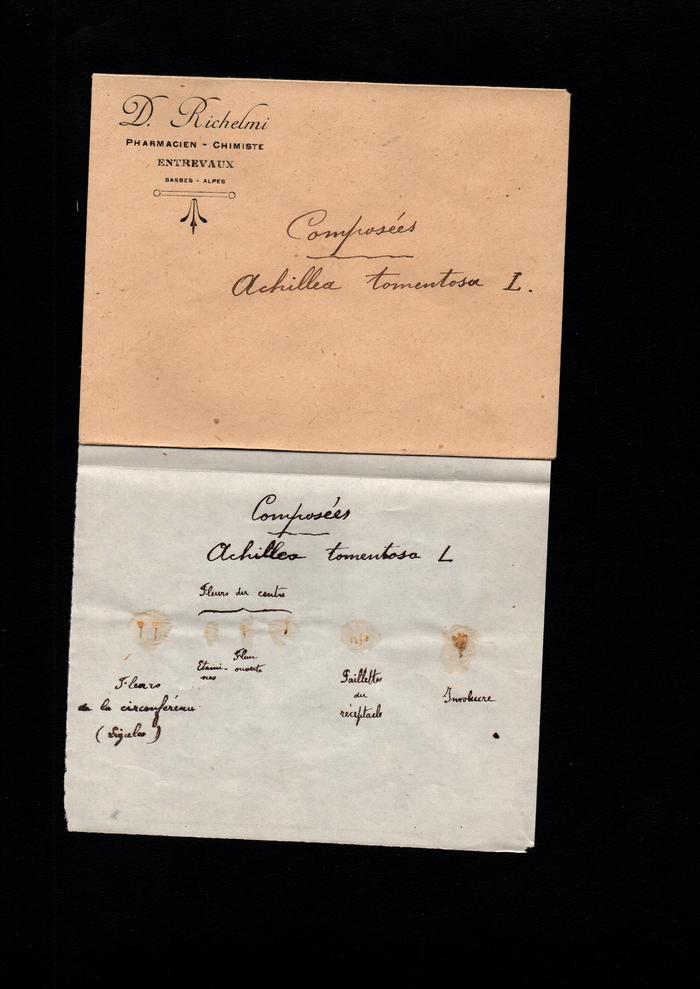 D. Richelmi
PHARMACIEN - CHIMISTE
ENTREVAUX
BASSES - ALPES
Composées
Achillea tomentosa L.
Composées
Achillea tomentosa L
Fleurs du centre
Etami-
nes
Fleur
ouverte
Fleurs
de la circonférence
(Ligules)
Paillettes
du
réceptacle
Involucre